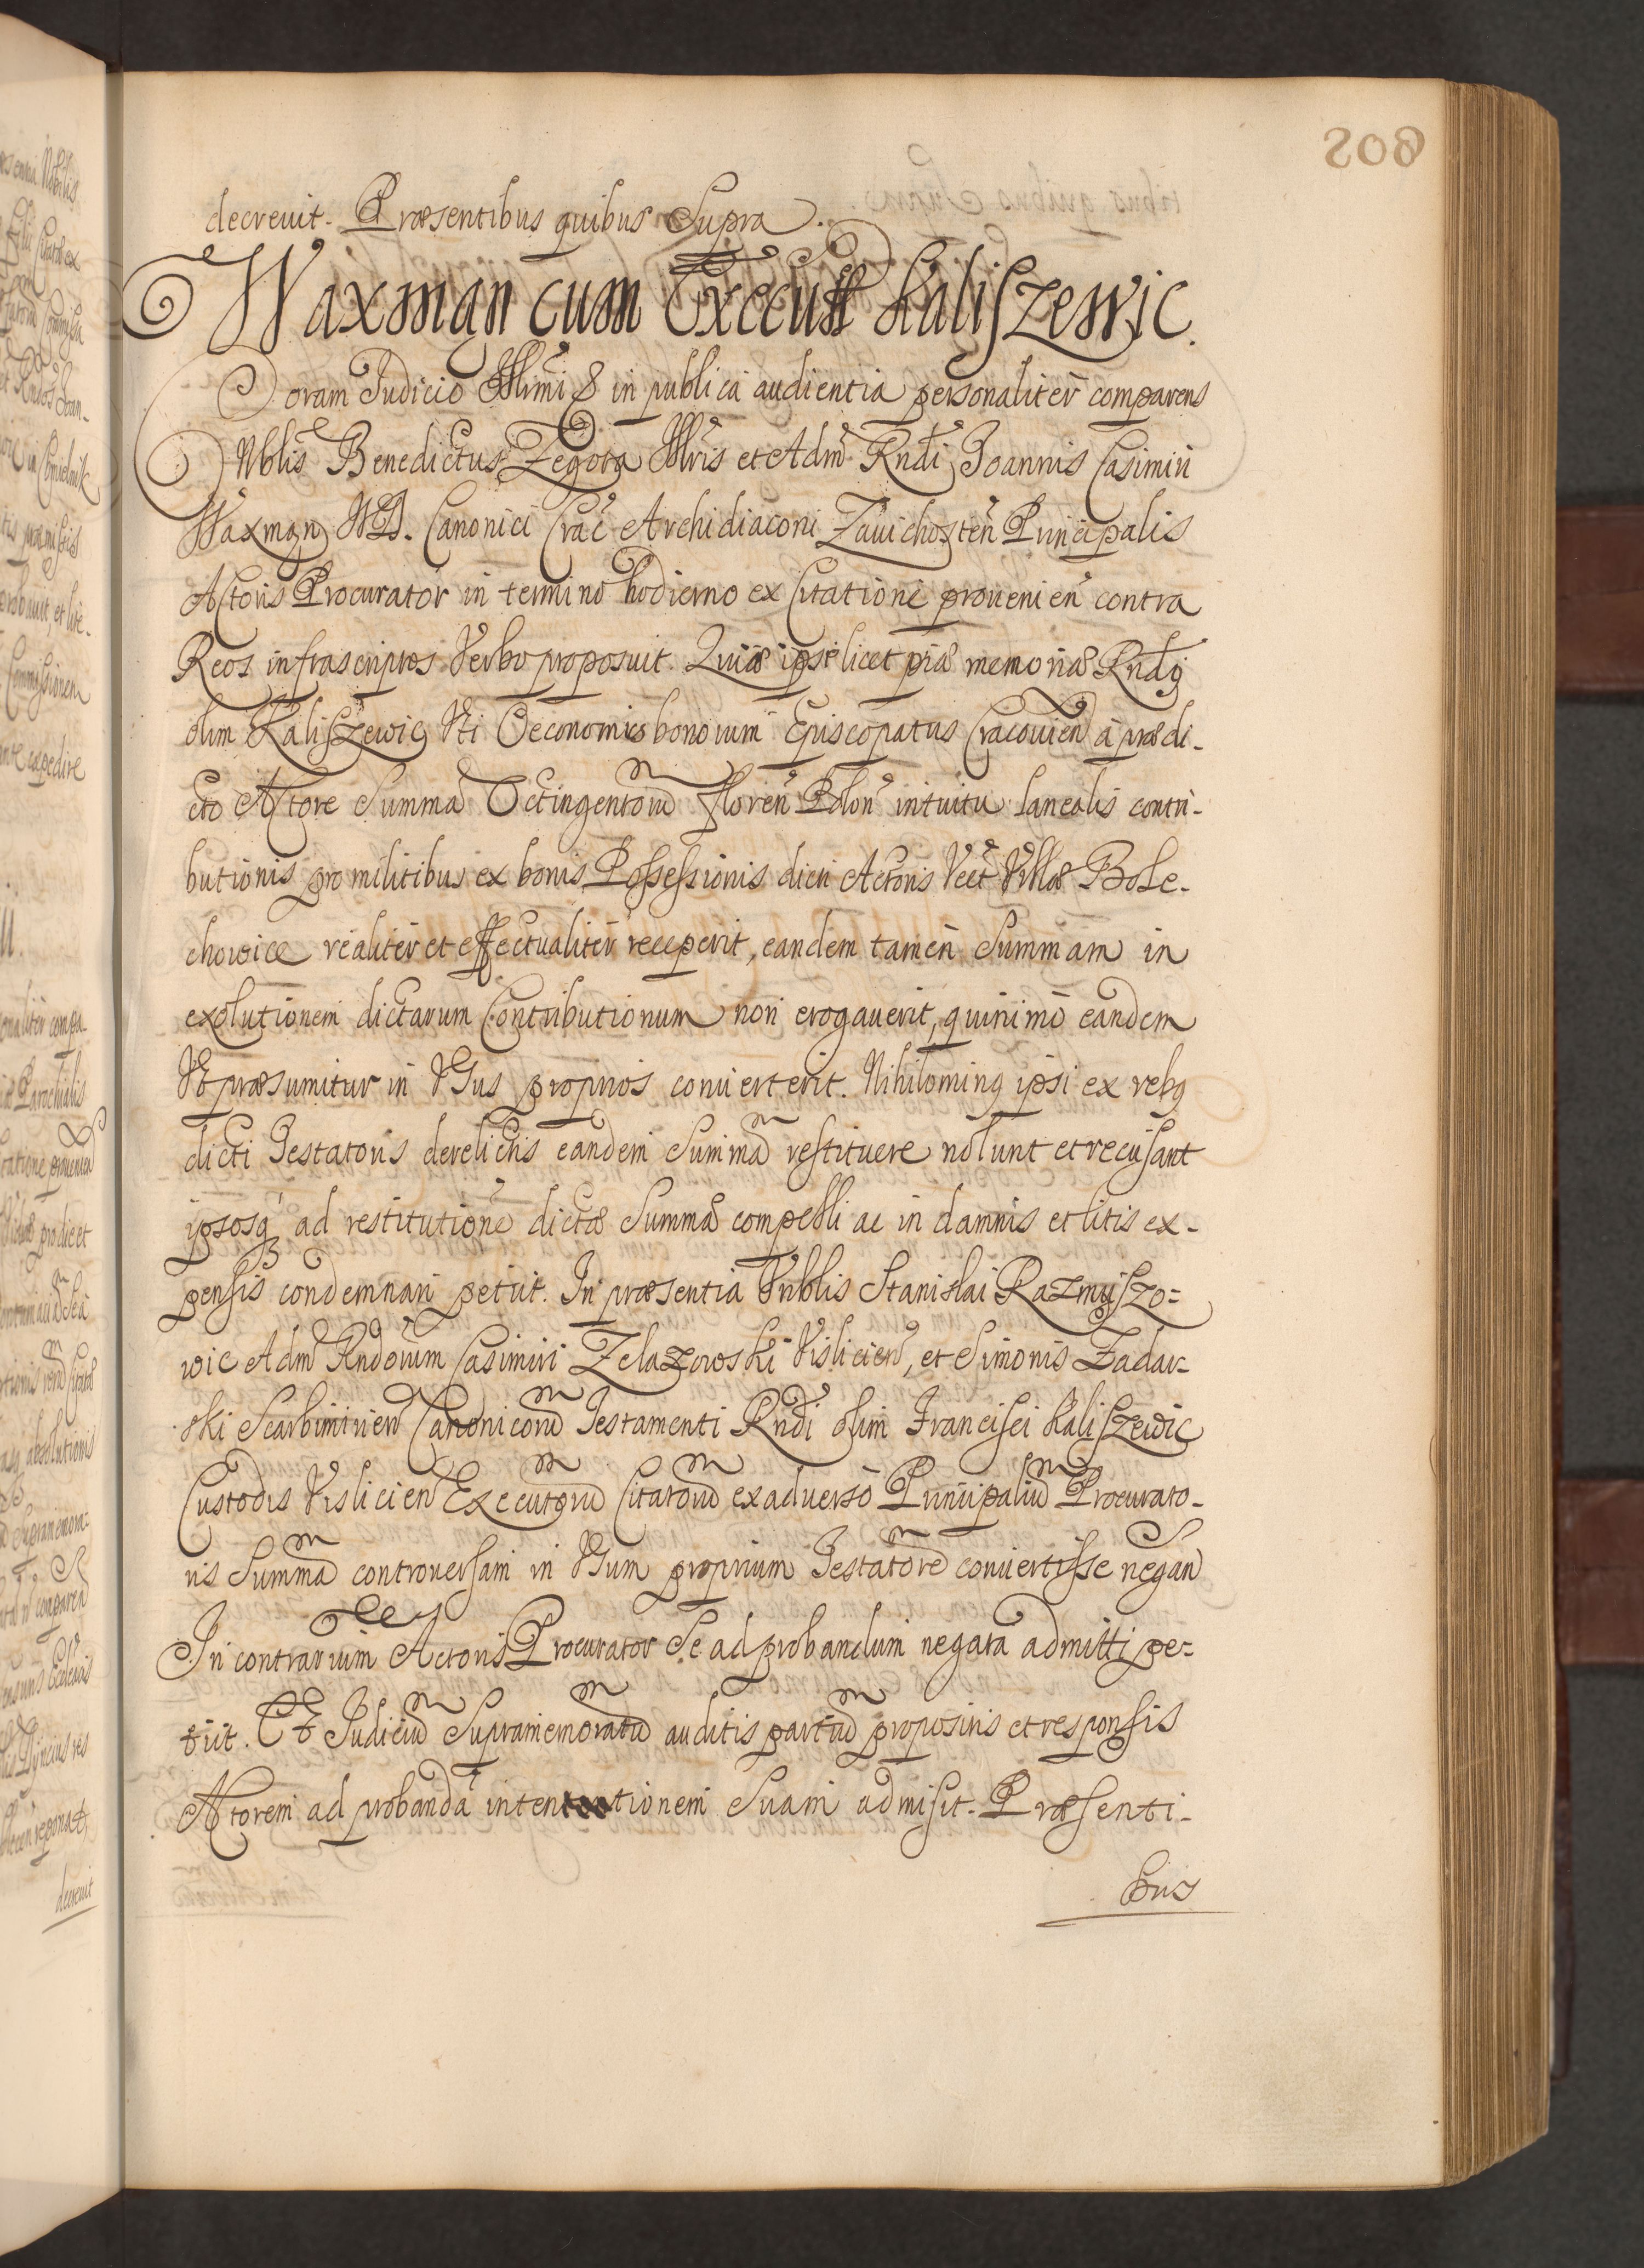 208
decreuit. Præsentibus quibus Supra.
Waxman cum Execut Kaliszewic.
Coram Judicio Illmi & in publica audientia personaliter comparens
Nblis Benedictus Zegota Illris et Adm Rndi Joannis Casimiri
Waxman VJD. Canonici Crac Archidiaconi Zauichosten Principalis
Actoris Procurator in termino hodierno ex Citatione prouenien contra
Reos infrascriptos Verbo proposuit. Quia ipse licet piæ memoriæ Rndg
olim Kaliszewic Uti Oeconomus bonorum Episcopatus Cracouien à prædi-
cto Actore Summã Octingentorũ Floren Polon intuitu lanealis contri-
butionis pro militibus ex bonis Possessionis dicti Actoris Vect Villæ Bole-
chowice realiter et effectualiter receperit, eandem tamen Summam in
exolutionem dictarum Contributionum non erogauerit, quinimo eandem
Ut præsumitur in Usus proprios conuerterit. Nihiloming ipsi ex rebg
dicti Testatoris derelictis eandem Summã restituere nolunt et recusant
ipsosq ad restitutionẽ dictæ Summæ compelli ac in damnis et litis ex-
pensis condemnari petiit. In præsentia Nblis Stanislai Razmuszo=
wic Adm Rndorum Casimiri Zelazowski Vislicien, et Simonis Zadar-
ski Scarbimirien Canonicorũ Testamenti Rndi olim Francisci Kaliszewic
Custodis Vislicien Executorũ Citatorũ ex aduerso Principaliũ Procurato-
ris Summã controuersam in Usum proprium Testatorẽ conuertisse negan
In contrarium Actoris Procurator Se ad probandum negata admitti pe-
tiit. Et Judiciũ Supramemoratũ auditis partiũ propositis et responsis
Actorem ad probandã intentionem Suam admisit. Præsenti-
bus